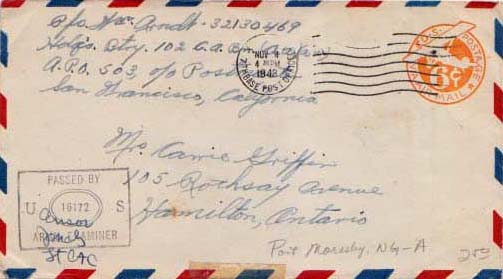 Arndt - 32130469
Hdqs. Btry. 102 C.A. Bn.
A.P.O. 503, c/o Postmaster
San Francisco, California
NOV
4 PM
1942
BASE POST OFFICE
U.S. POSTAGE
6¢
AIR MAIL
Mrs. Carrie Griffin
105 Rocksay Avenue
Hamilton, Ontario
PASSED BY
U 16172 S
ARMY EXAMINER
Port Moresby, NG-A